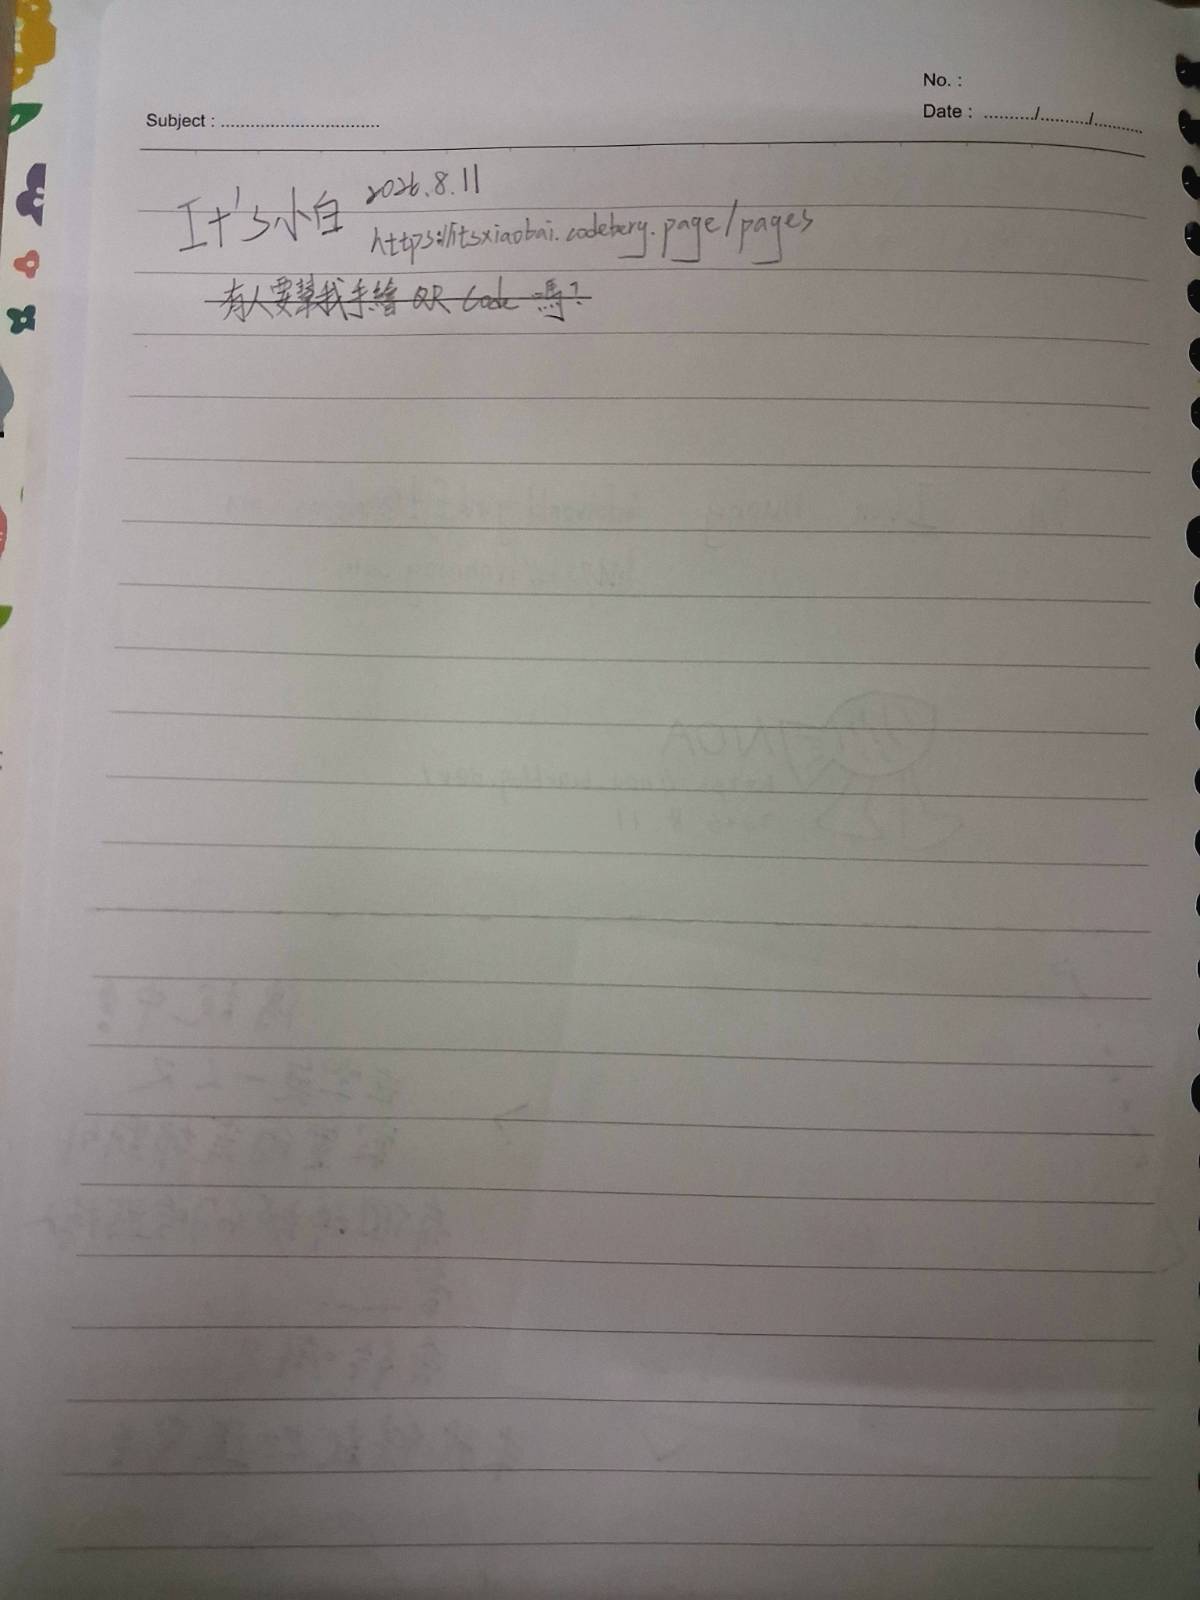 No. :
Subject : ................................
Date : ........../........../..........
It's小白 2026.8.11
https://itsxiaobai.codeberg.page/pages
有人要幫我手繪 QR Code 嗎？